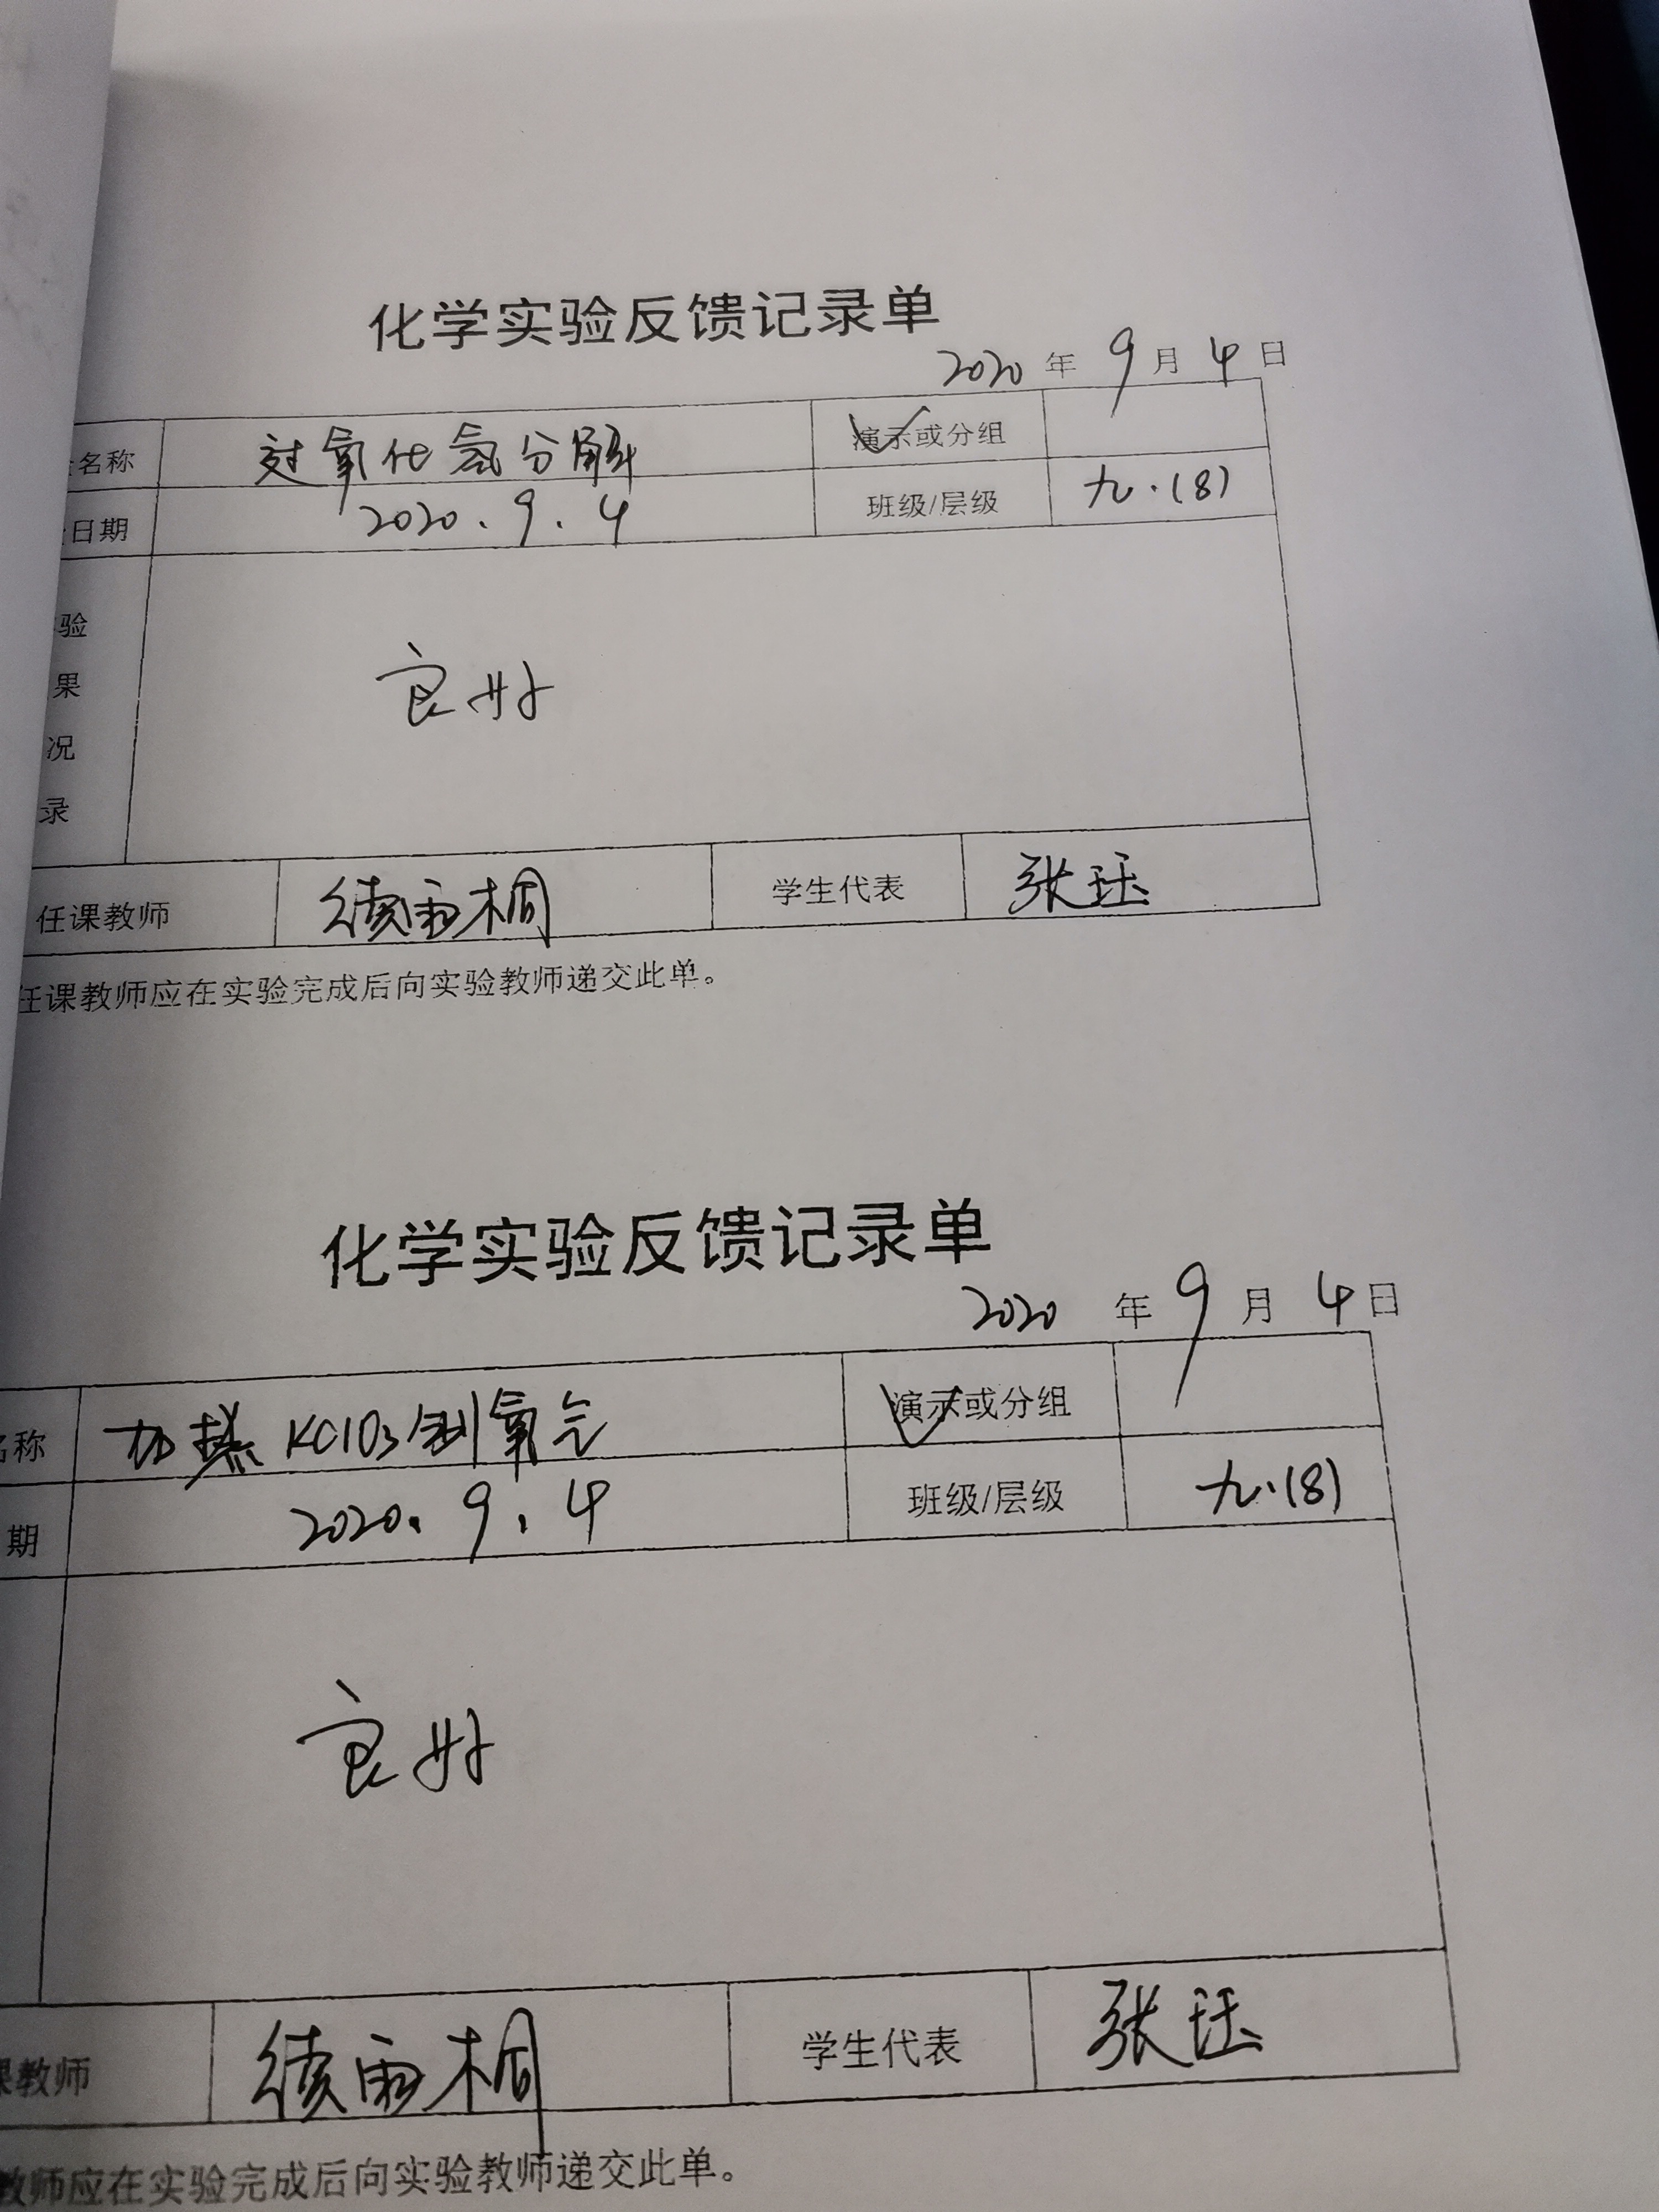 化学实验反馈记录单
2020 年 9 月 4 日
名称 过氧化氢分解 演示或分组
日期 2020.9.4 班级/层级 九.(8)
验
果
况
录
良好
任课教师 续雨桐 学生代表 张珏
任课教师应在实验完成后向实验教师递交此单。
化学实验反馈记录单
2020 年 9 月 4 日
名称 加热KClO3制氧气 演示或分组
期 2020.9.4 班级/层级 九.(8)
良好
课教师 续雨桐 学生代表 张珏
教师应在实验完成后向实验教师递交此单。